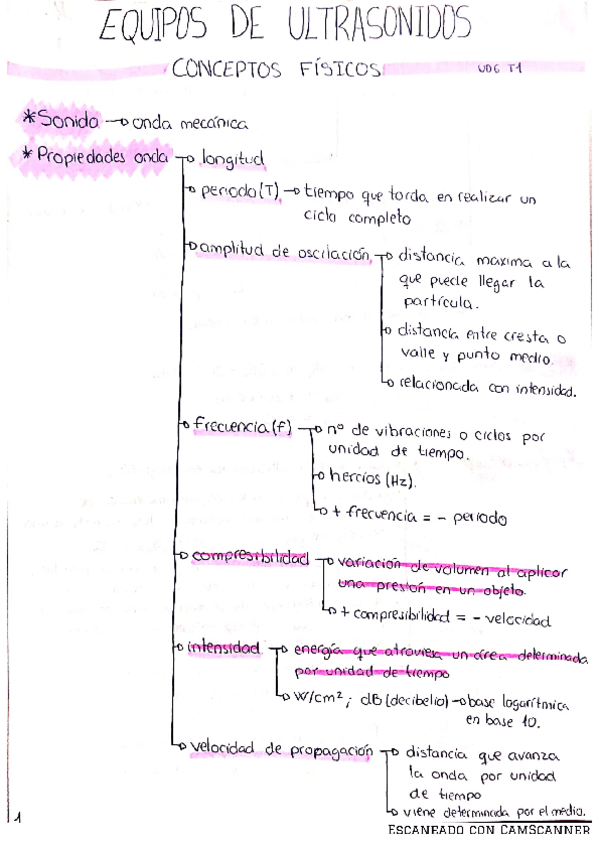 EQUIPOS DE ULTRASONIDOS
CONCEPTOS FÍSICOS
UD6 T1
* Sonido → onda mecánica
* Propiedades onda → longitud
→ periodo (T) → tiempo que tarda en realizar un
ciclo completo
→ amplitud de oscilación → distancia maxima a la
que puede llegar la
partícula.
→ distancia entre cresta o
valle y punto medio.
→ relacionada con intensidad.
→ frecuencia (f) → nº de vibraciones o ciclos por
unidad de tiempo.
→ hercios (Hz).
→ + frecuencia = - periodo
→ compresibilidad → variación de volumen al aplicar
una presión en un objeto.
→ + compresibilidad = - velocidad
→ intensidad → energía que atraviesa un área determinada
por unidad de tiempo
→ W/cm²; dB (decibelio) → base logarítmica
en base 10.
→ velocidad de propagación → distancia que avanza
la onda por unidad
de tiempo
→ viene determinada por el medio.
1
ESCANEADO CON CAMSCANNER